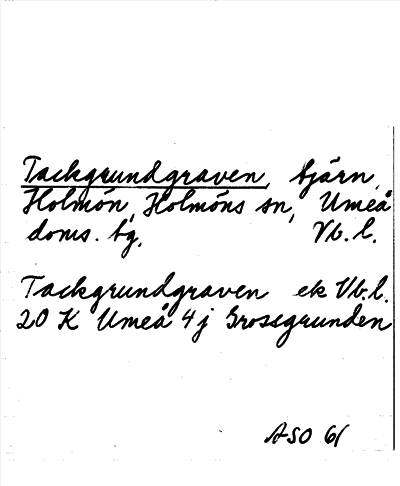 Tackgrundgraven, fjärn,
Holmön, Holmöns sn, Umeå
doms. bg, Vb. l.
Tackgrundgraven ek Vb. l.
20 K Umeå 4 j Grossgrunden
ASO 61